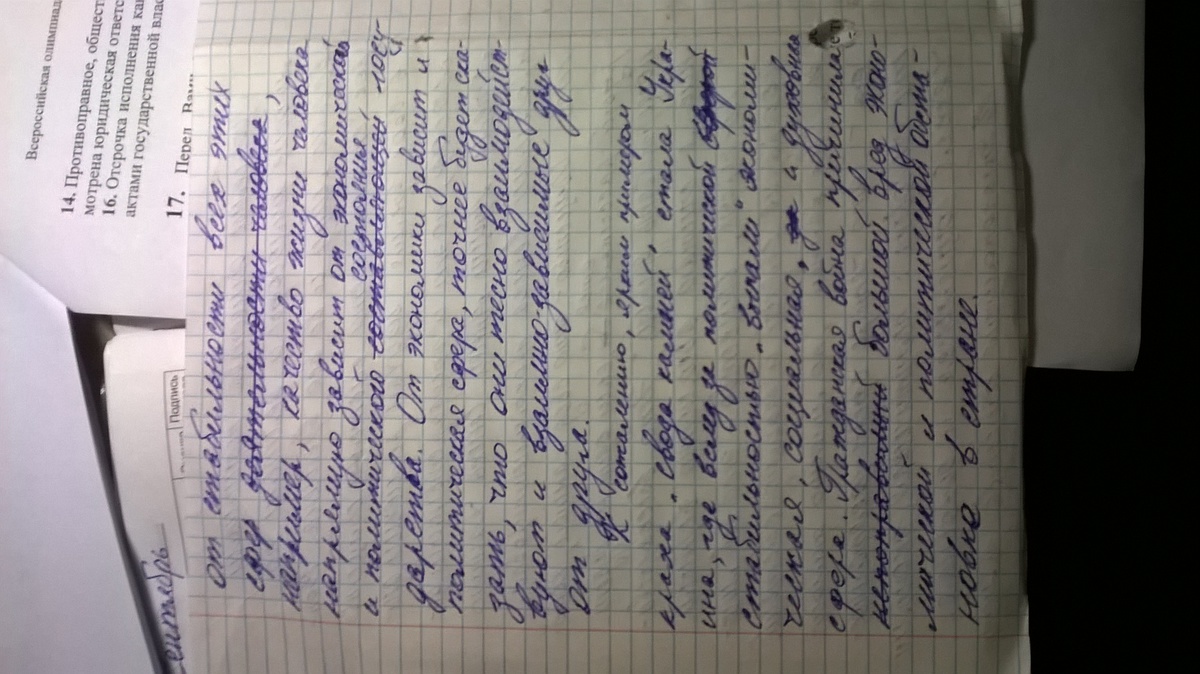 Всероссийская олимпиад
14. Противоправное, обществ
мотрена юридическая ответс
16. Отсрочка исполнения как
актами государственной влас
17. Перед Вами
Подпись
ентябрь
от стабильности всех этих
сфер деятельности человека,
например, качество жизни человека
напрямую зависит от экономической
и политической составляющей состоянья, госу-
дарства. От экономики зависит и
политическая сфера, точнее будет ска-
зать, что они тесно взаимодейст-
вуют и взаимно-зависимые друг
от друга.
К сожалению, ярким примером
краха "свода камней", стала Укра-
ина, где вслед за политической
стабильностью "выпали" экономи-
ческая, социальная, и духовная
сфера. Гражданская война причинила
непоправимый большой вред эконо-
мической и политической обста-
новке в стране.